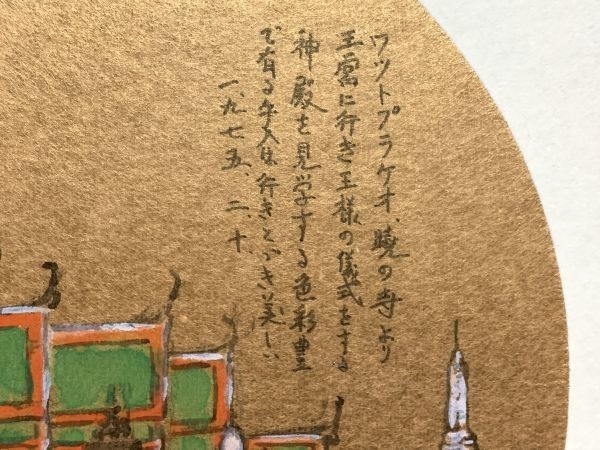 ワットプラケオ、暁の寺より
王宮に行き王様の儀式をする
神殿を見学する色彩豊
で有る手入は行きとゞき美しい
一、九七五、二、十、